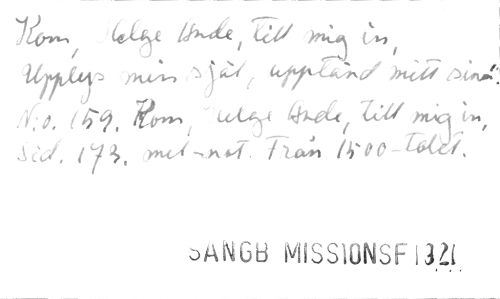 Kom, Helge Ande, till mig in,
Upplys min själ, upptänd mitt sinn'.
N:o. 159. Kom, Helge Ande, till mig in,
Sid. 173. mel-not. Från 1500-talet.
SÅNGB MISSIONSF 1321